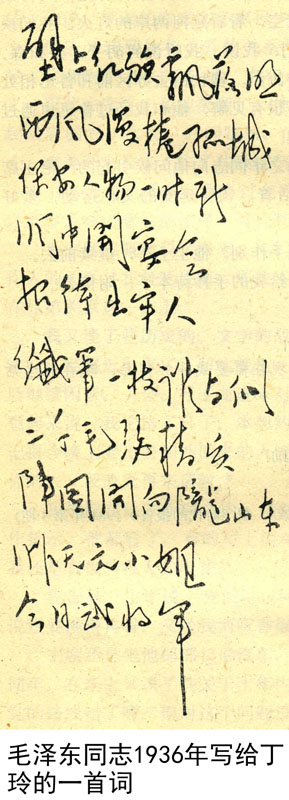 壁上红旗飘落照
西风漫捲孤城
保安人物一时新
洞中開宴会
招待出牢人
纖筆一枝谁与似
三千毛瑟精兵
陣图開向隴山东
昨天文小姐
今日武将军
毛泽东同志1936年写给丁
玲的一首词